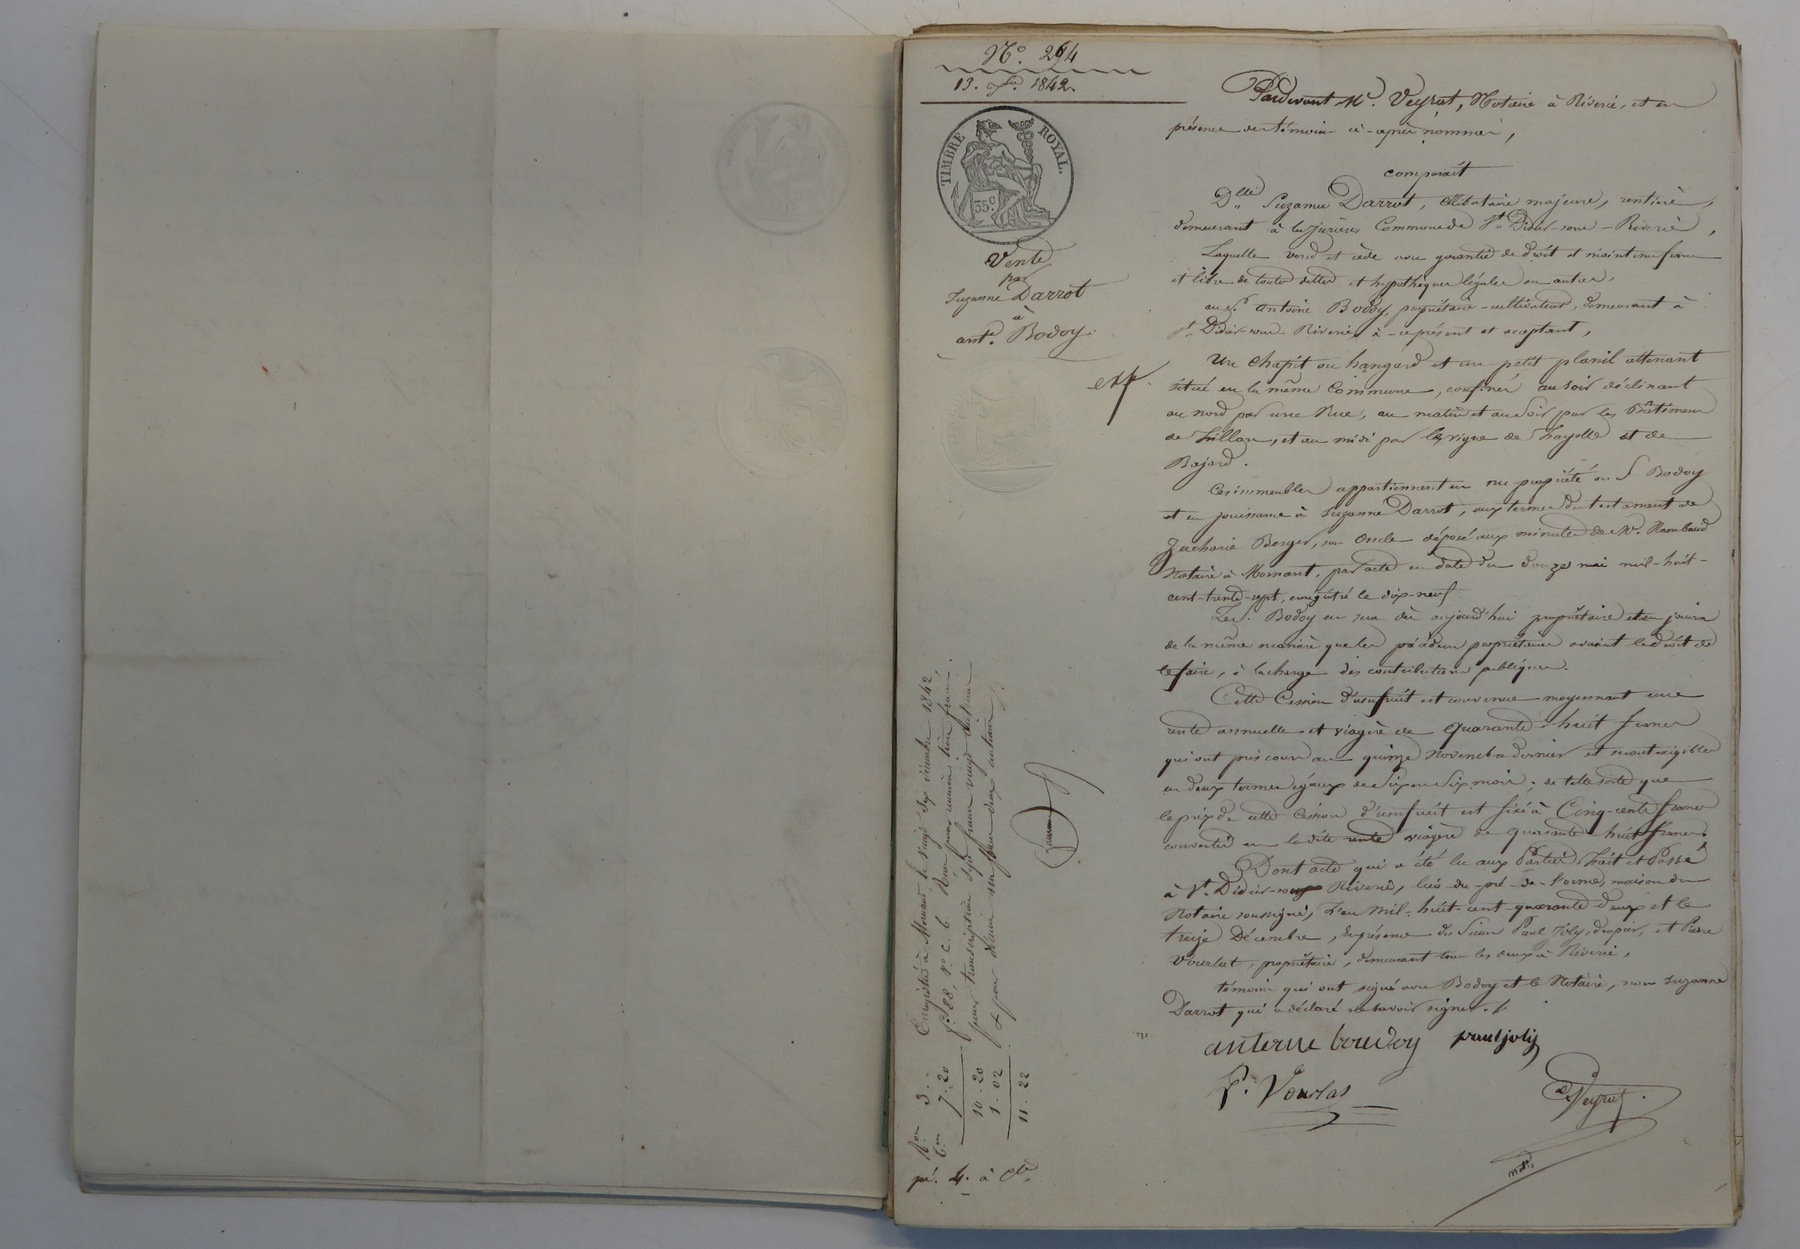 N.° 294
13. Xbre. 1842.
TIMBRE ROYAL.
35.c
Vente
par
Suzanne Darrot
à
ant.e Bodoy.
exp.
Pardevant M.e Veyrat, Notaire à Riverie, et en
présence des témoins ci-après nommés,
comparaît
D.lle Suzanne Darrot, célibataire majeure, rentière,
demeurant à Commune de S.t Didier-sous-Riverie,
Laquelle vend et cède avec garantie de droit et maintenue franc
et libre de toutes dettes et hypothèques légales ou autres,
au S.r Antoine Bodoy, propriétaire-cultivateur, demeurant à
S.t Didier-sous-Riverie à-ce présent et acceptant,
Un chapit ou hangard et un petit planil attenant
situé en la même Commune, confinés au soir déclinant
au nord par une Rue, au matin et au soir par les Bâtiments
de et au midi par les vigne de Thayolle et de
Bajard.
Ces immeubles appartiennent en nue propriété au S Bodoy
et en jouissance à Suzanne Darrot, aux termes du testament de
Zacharie Berger, son Oncle déposé aux minutes de M.e Rambaud
Notaire à Mornant, par acte en date du douze mai mil-huit-
cent-trente-sept, enregistré le dix-neuf.
Le S. Bodoy en sera dès aujourd'hui propriétaire et en jouira
de la même manière que les précédens propriétaires avaient le droit de
le faire, à la charge des contributions publiques.
Cette Cession d'usufruit est convenue moyennant une
rente annuelle et viagère de quarante-huit francs
qui ont pris cours au quinze Novembre dernier et seront exigibles
en deux termes égaux de Six en Six mois; de telle sorte que
le prix de cette Cession d'usufruit est fixé à Cinq-cents francs
convertis en la dite rente viagère de quarante huit francs.
Dont acte qui a été lu aux Parties. Fait et Passé
à S.t Didier-sous Riverie, lieu du-pré-de-l'orme, maison du
Notaire soussigné, L'an mil-huit-cent-quarante-deux et le
treize Décembre, en présence des Sieurs Paul Joly, drapier, et Pierre
Vourlat, propriétaire, demeurant tous les deux à Riverie,
témoins qui ont signé avec Bodoy et le Notaire, non Suzanne
Darrot qui a déclaré ne savoir signer./
anterne boudoy pauljoly
P. Vourlas
Veyrat
not.re
Enregistré à Mornant, le vingt dix décembre 1842,
f.° 88, r.° c. 6. Reçu pour trois francs,
pour transcription sept francs vingt centimes
& pour dixième un franc deux centimes.
3 . "
7. 20
10. 20
1. 02
11. 22